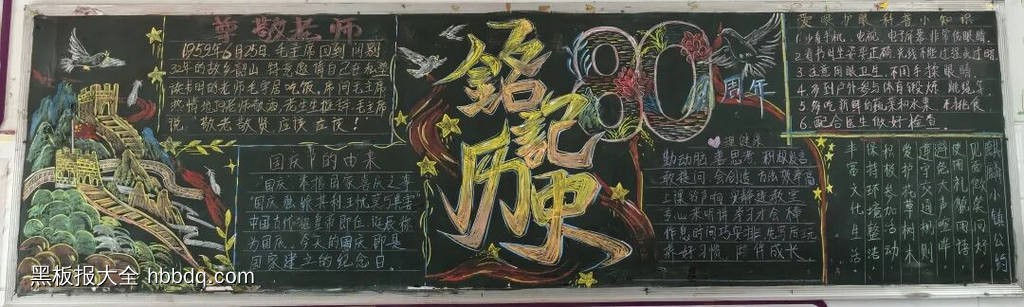 尊敬老师
1959年6月25日毛主席回到阔别
32年的故乡韶山 特意邀请自己在私塾
读书时的老师毛宇居吃饭,席间毛主席
热情地向老师敬酒,老先生推辞,毛主席
说“敬老敬贤应该应该!”
国庆节的由来
“国庆”本指国家喜庆之事
中国古代把皇帝即位、诞辰称
为国庆。今天的国庆,即是
国家建立的纪念日。
铭記历史
80周年
爱眼护眼科普小知识
1.少看手机、电视,电子屏幕非常伤眼睛。
2.看书写字姿势正确,光线不能过强或过暗。
3.注意用眼卫生,不用手揉眼睛。
4.多到户外参与体育锻炼,跳绳等。
5.多吃新鲜的蔬菜和水果,不挑食
6.配合医生做好检查。
勤动脑 善思考 积极发言
上课铃声响 安静进教室
专心来听讲 学习才会棒
作息时间巧安排 先写后玩
养好习惯 陪伴成长
公约
见面微笑问好
使用礼貌用语
避免大声喧哗
遵守交通规则
爱护花草树木
积极参加活动
保持环境整洁
丰富文化生活
黑板报大全 hbbdq.com